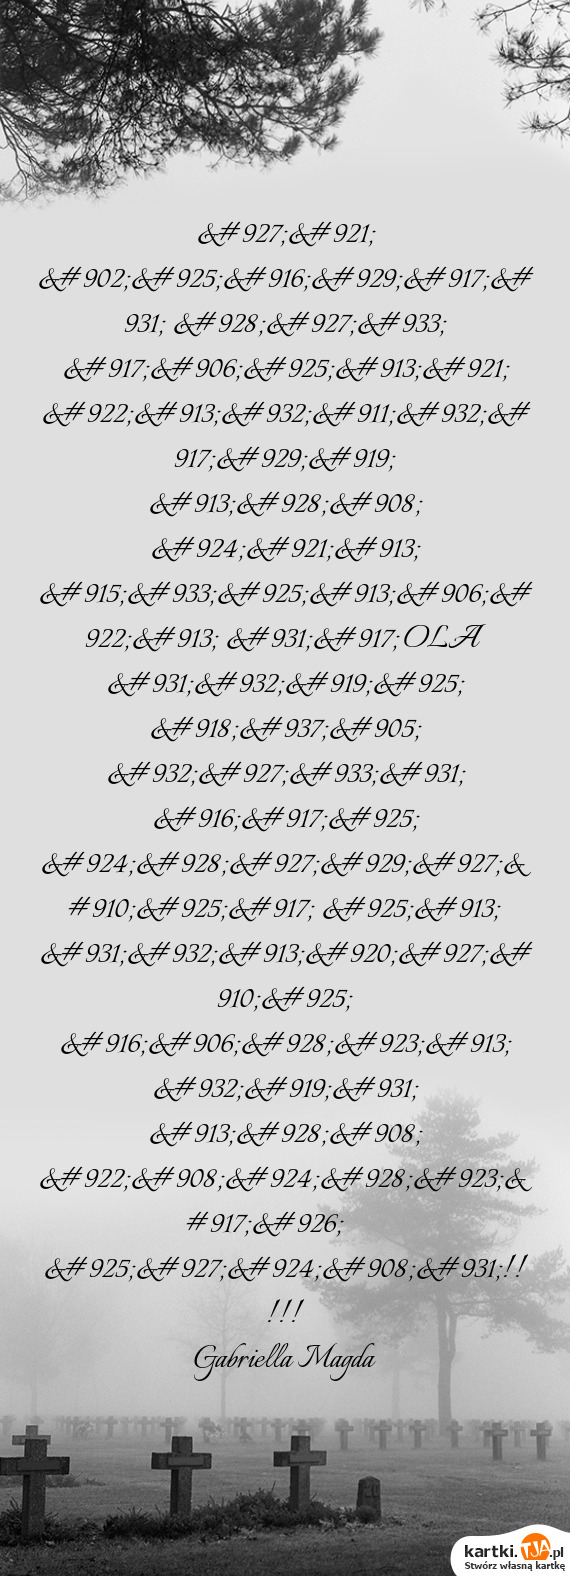 &# 927;&# 921;
&# 902;&# 925;&# 916;&# 929;&# 917;&#
931; &# 928;&# 927;&# 933;
&# 917;&# 906;&# 925;&# 913;&# 921;
&# 922;&# 913;&# 932;&# 911;&# 932;&#
917;&# 929;&# 919;
&# 913;&# 928;&# 908;
&# 924;&# 921;&# 913;
&# 915;&# 933;&# 925;&# 913;&# 906;&#
922;&# 913; &# 931;&# 917;OLA
&# 931;&# 932;&# 919;&# 925;
&# 918;&# 937;&# 905;
&# 932;&# 927;&# 933;&# 931;
&# 916;&# 917;&# 925;
&# 924;&# 928;&# 927;&# 929;&# 927;&
# 910;&# 925;&# 917; &# 925;&# 913;
&# 931;&# 932;&# 913;&# 920;&# 927;&#
910;&# 925;
&# 916;&# 906;&# 928;&# 923;&# 913;
&# 932;&# 919;&# 931;
&# 913;&# 928;&# 908;
&# 922;&# 908;&# 924;&# 928;&# 923;&
# 917;&# 926;
&# 925;&# 927;&# 924;&# 908;&# 931;!!
!!!
Gabriella Magda
kartki.TJA.pl
Stwórz własną kartkę